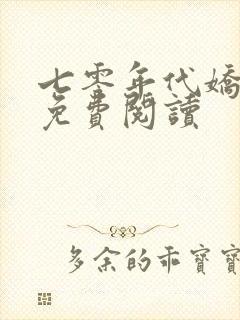 七零年代嬌
免費閱讀
多余的乖寶寶